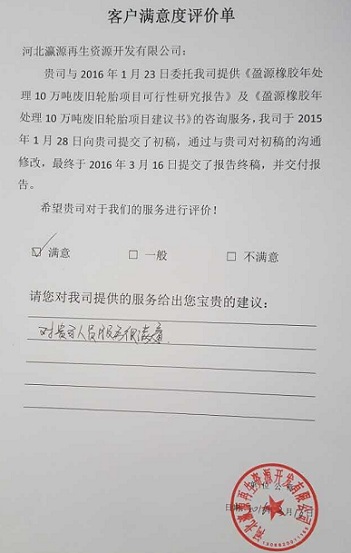 客户满意度评价单
河北瀛源再生资源开发有限公司：
贵司与 2016 年 1 月 23 日委托我司提供《盈源橡胶年处
理 10 万吨废旧轮胎项目可行性研究报告》及《盈源橡胶年
处理 10 万吨废旧轮胎项目建议书》的咨询服务，我司于 2015
年 1 月 28 日向贵司提交了初稿，通过与贵司对初稿的沟通
修改，最终于 2016 年 3 月 16 日提交了报告终稿，并交付报
告。
希望贵司对于我们的服务进行评价！
☑ 满意 □ 一般 □ 不满意
请您对我司提供的服务给出您宝贵的建议：
对贵司人员服务很满意
河北瀛源再生资源开发有限公司